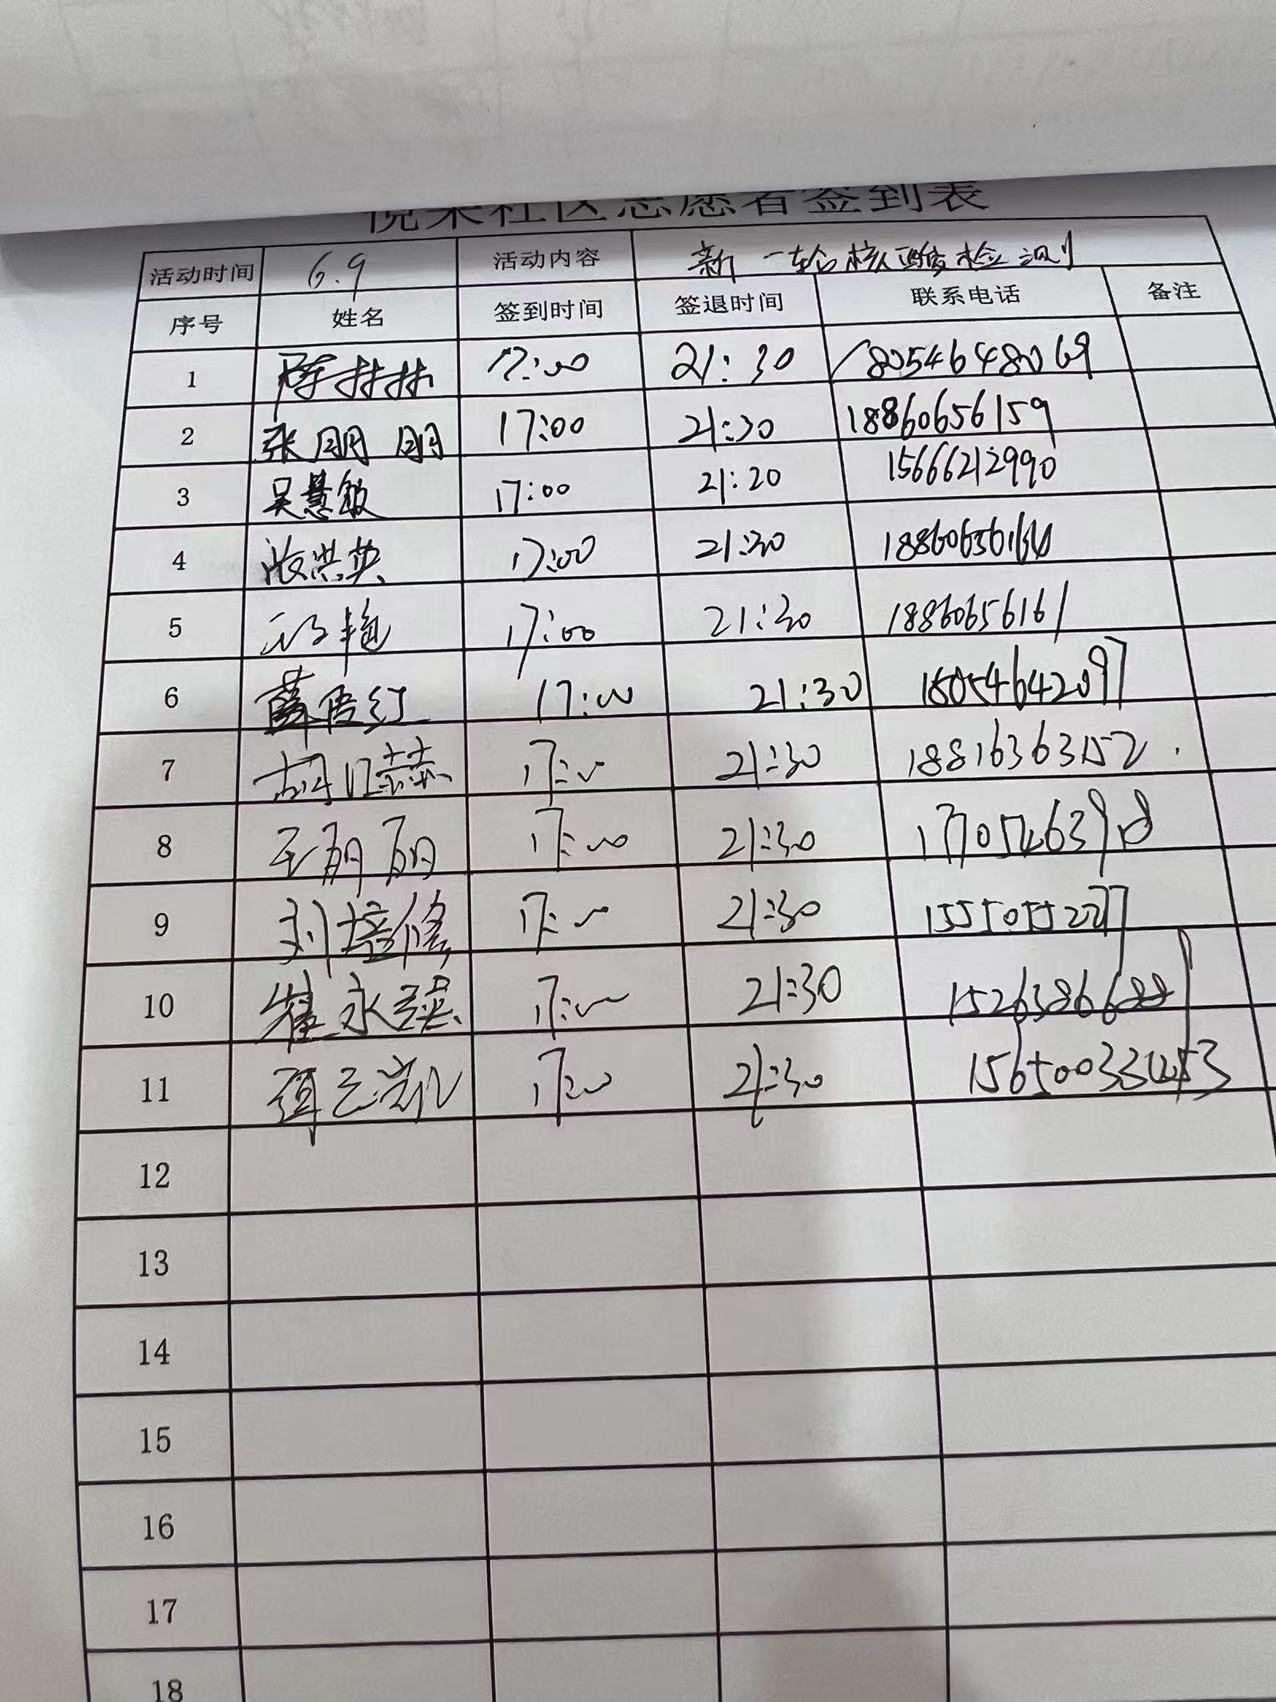 社区志愿者签到表
活动时间 6.9 活动内容 新一轮核酸检测
序号 姓名 签到时间 签退时间 联系电话 备注
1 陈林林 17:00 21:30 18054648069
2 张朋朋 17:00 21:30 18860656159
3 吴慧敏 17:00 21:20 15666212990
4 17:00 21:30
5 17:00 21:30 18860656161
6 薛雪红 17:00 21:30 15054642097
7 17:00 21:30 18816363152
8 王丽丽 17:00 21:30
9 刘培修 17:00 21:30
10 崔永 17:00 21:30
11 17:00 21:30
12
13
14
15
16
17
18